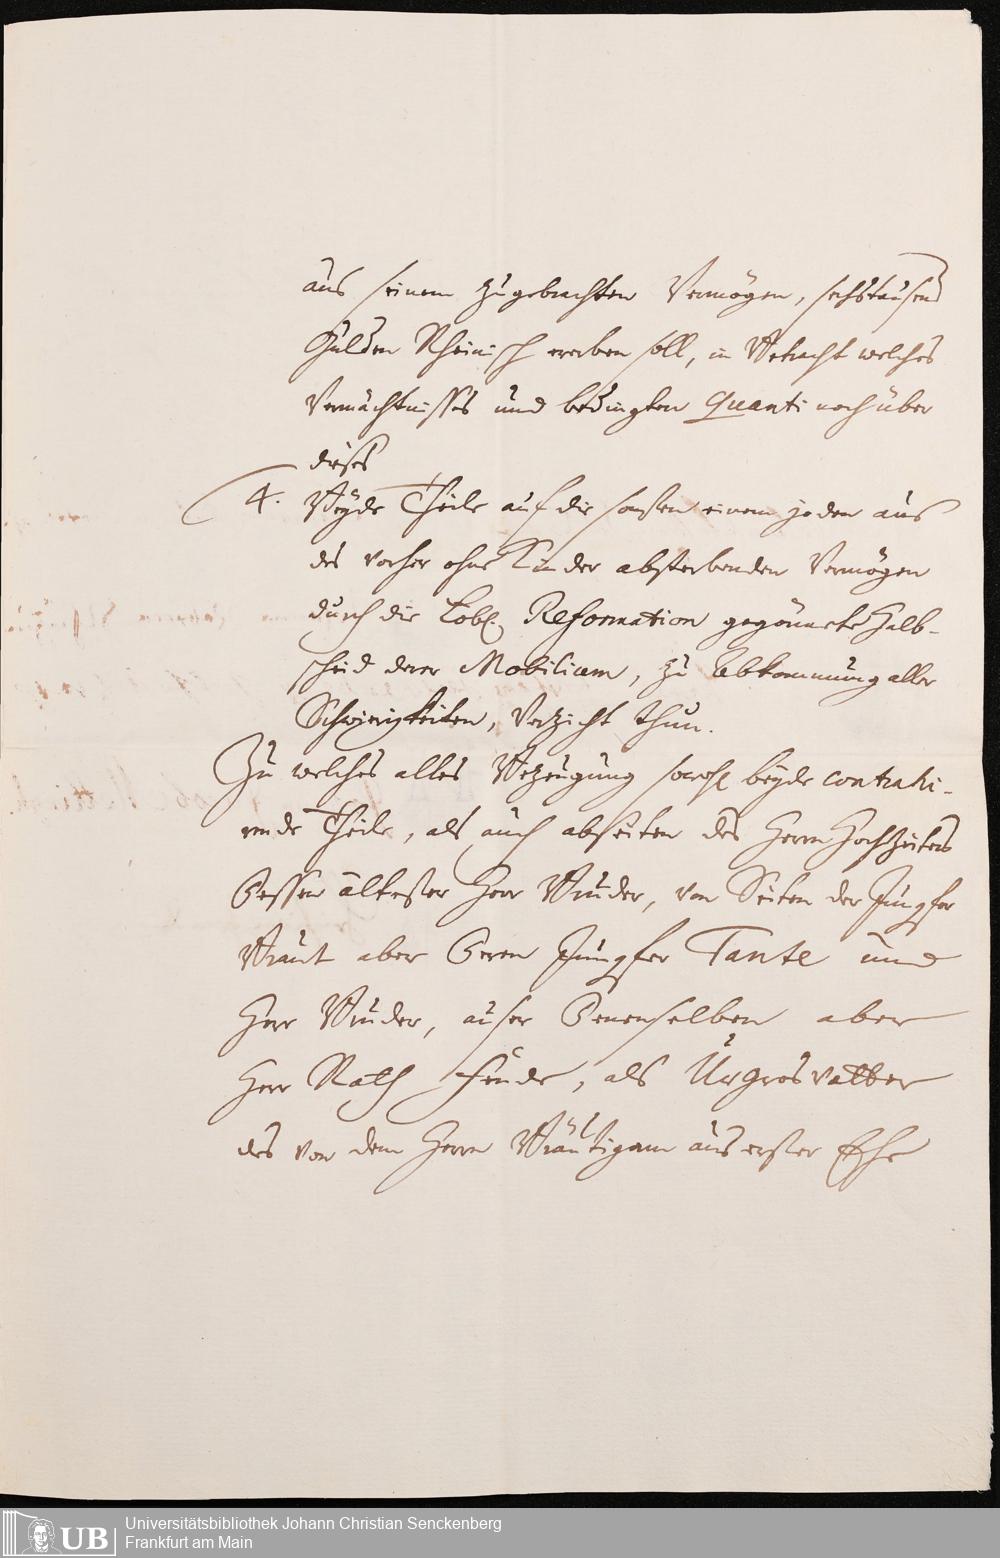 aus seinem zugebrachten Vermögen, sechstausend
Gulden Rheinisch ererben soll, in Betracht welches
Vermächtnisses und bedingten Quanti noch über
dieses
4. Beyde Theile auf die sonsten einem jeden aus
des vorher ohne Kinder absterbenden Vermögen
durch die Löbl. Reformation gegönnete Halb-
scheid derer Mobilium, zu Abkommung aller
Schwierigkeiten, Verzicht thun.
Zu welches alles Bezeugung sowohl beyde contrahi-
rende Theile, als auch abseiten des Herrn Hochzeiters
Dessen ältester Herr Bruder, von Seiten der Jungfer
Braut aber Deren Jungfer Tante und
Herr Bruder, auser Denenselben aber
Herr Rath, als Urgrosvatter
des von dem Herrn Bräutigam aus erster Ehe
UB
Universitätsbibliothek Johann Christian Senckenberg
Frankfurt am Main